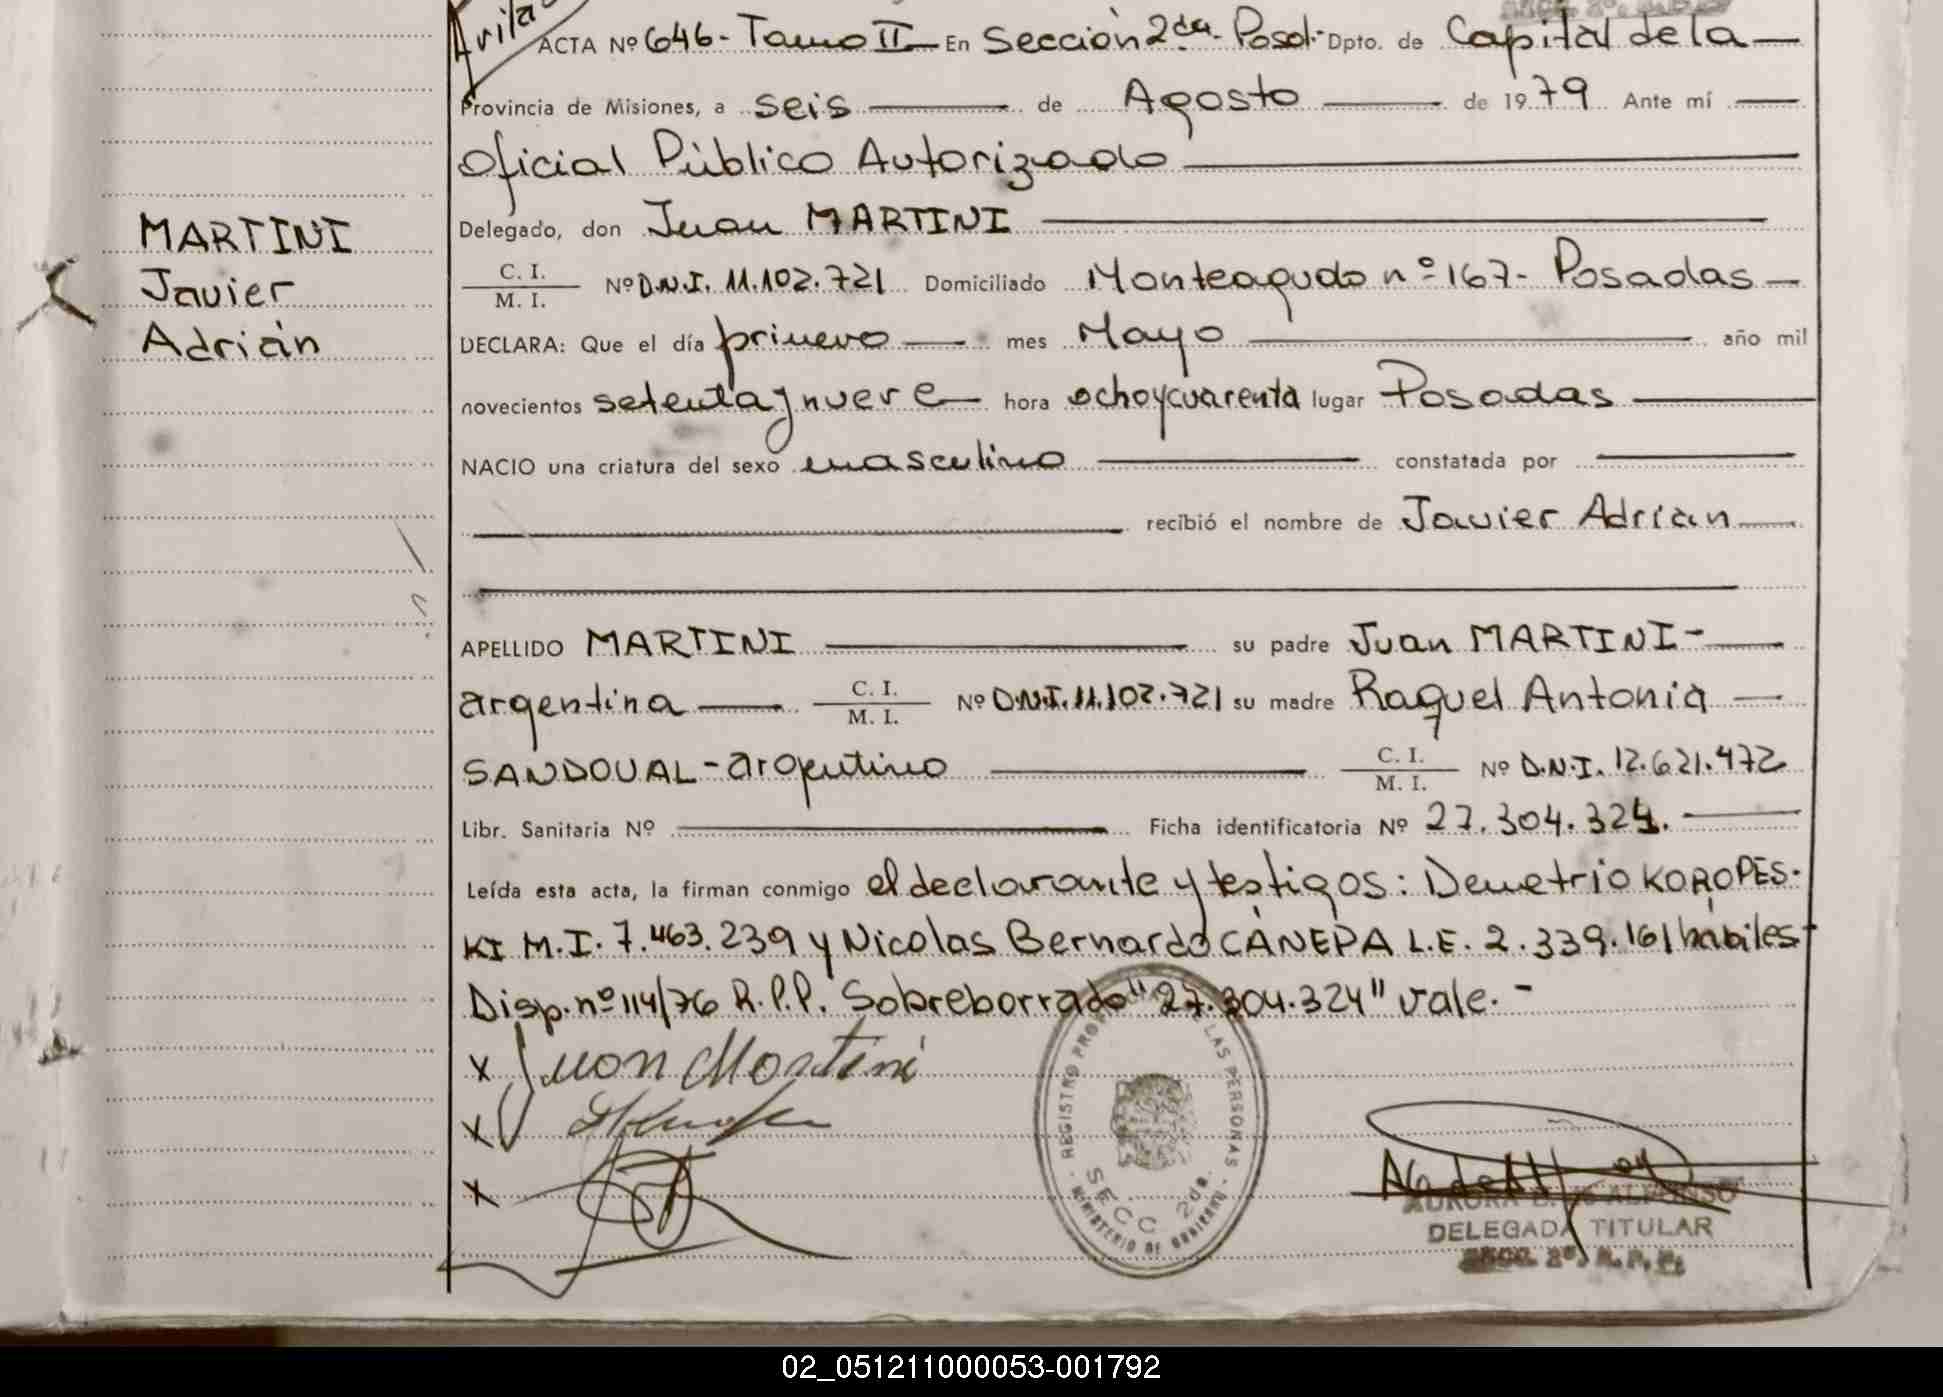 Avila
ACTA Nº 646- Tomo II En Sección 2da. Posd. Dpto. de Capital de la
Provincia de Misiones, a seis de Agosto de 1979 Ante mí
Oficial Público Autorizado
Delegado, don Juan MARTINI
C. I.
M. I. Nº D.N.I. 11.102.721 Domiciliado Monteagudo nº 167- Posadas
DECLARA: Que el día primero mes Mayo año mil
novecientos setenta y nueve hora ocho y cuarenta lugar Posadas
NACIO una criatura del sexo masculino constatada por
recibió el nombre de Javier Adrian
APELLIDO MARTINI su padre Juan MARTINI-
argentina C. I.
M. I. Nº D.N.I. 11.102.721 su madre Raquel Antonia
SANDOVAL- argentino C. I.
M. I. Nº D.N.I. 12.621.472
Libr. Sanitaria Nº Ficha identificatoria Nº 27.304.324.
Leída esta acta, la firman conmigo el declarante y testigos: Demetrio KOROPES-
KI M.I. 7.463.239 y Nicolas Bernardo CÁNEPA L.E. 2.339.161 hábiles-
Disp. nº 114/76 R.P.P. Sobreborrado "27.304.324" vale.-
MARTINI
Javier
Adrián
x Juan Martini
x
x
REGISTRO PROV DE LAS PERSONAS
SECC 2da.
MINISTERIO DE GOBIERNO
DELEGADA TITULAR
SECC. 2ª, R. P. P.
02_051211000053-001792